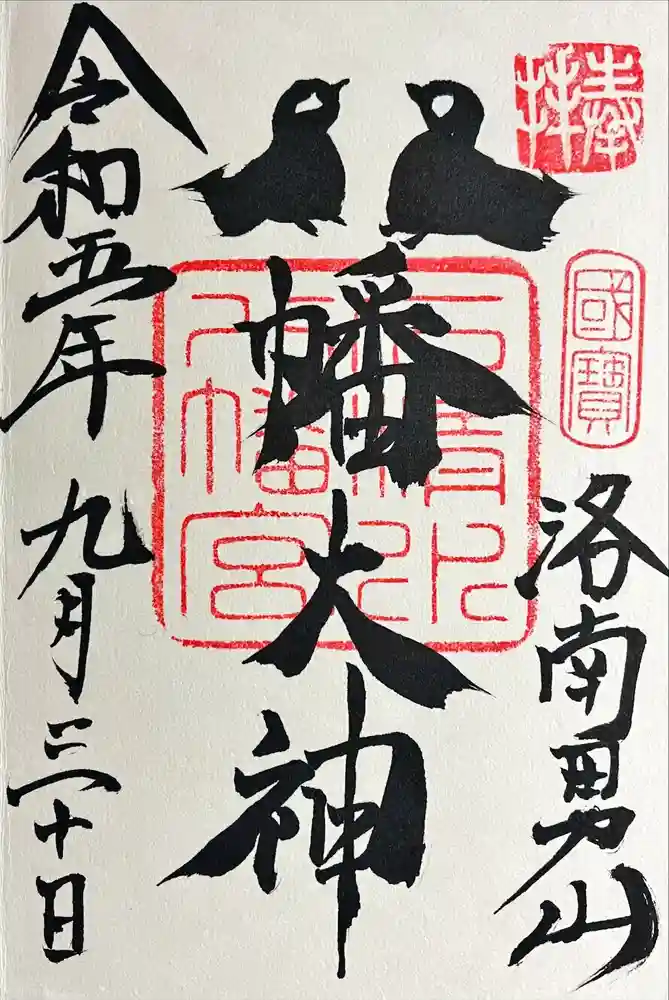 奉拝
國寶
洛南男山
幡大神
石清水
八幡宮
令和五年九月三十日